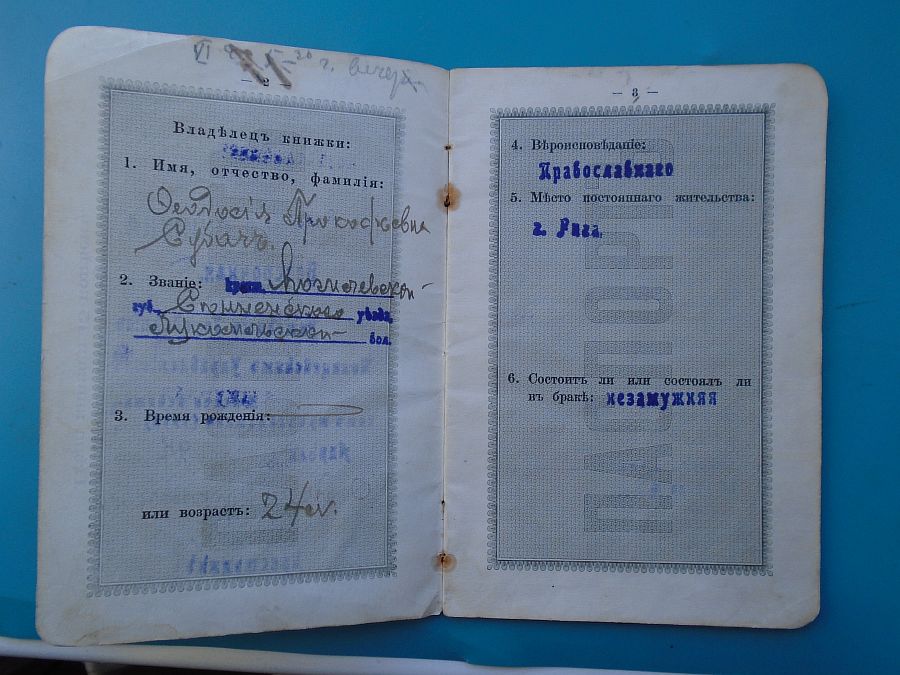 — 2 —
Владѣлецъ книжки:
1. Имя, отчество, фамилія:
Ѳеодосія Прокофьевна
2. Званіе: Могилевской
губ., Сѣнненскаго уѣзда,
Лукомльской вол.
3. Время рожденія:
или возрастъ: 24
— 3 —
4. Вѣроисповѣданіе:
Православнаго
5. Мѣсто постояннаго жительства:
г. Рига.
6. Состоитъ ли или состоялъ ли
въ бракѣ: незамужняя
ПАСПОРТЪ